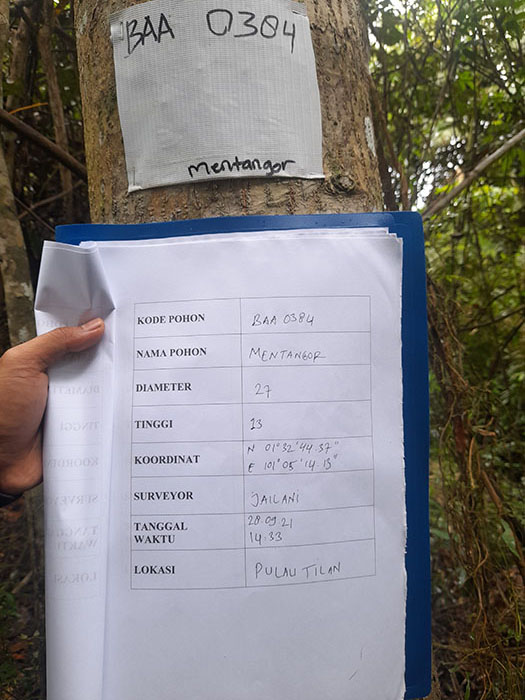 BAA 0384
mentangor
KODE POHON BAA 0384
NAMA POHON MENTANGOR
DIAMETER 27
TINGGI 13
KOORDINAT N 01°32'44.37"
E 101°05'14.13"
SURVEYOR JAILANI
TANGGAL 28.09.21
WAKTU 14.33
LOKASI PULAU TILAN